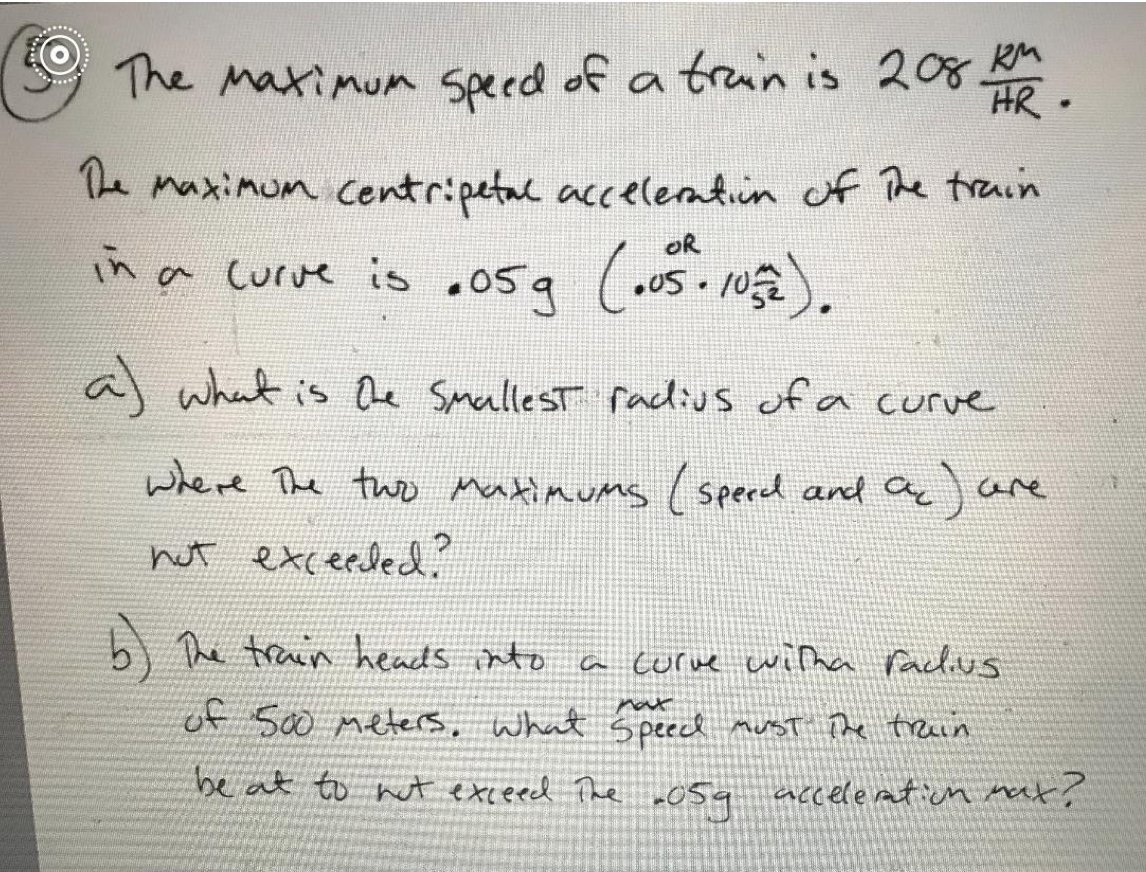 5) The maximum speed of a train is 208 KM/HR.
The maximum centripetal acceleration of the train
in a curve is .05g (OR .05 · 10 m/s²).
a) what is the smallest radius of a curve
where the two maximums (speed and ac) are
not exceeded?
b) The train heads into a curve with a radius
of 500 meters. What max speed must the train
be at to not exceed the .05g acceleration max?